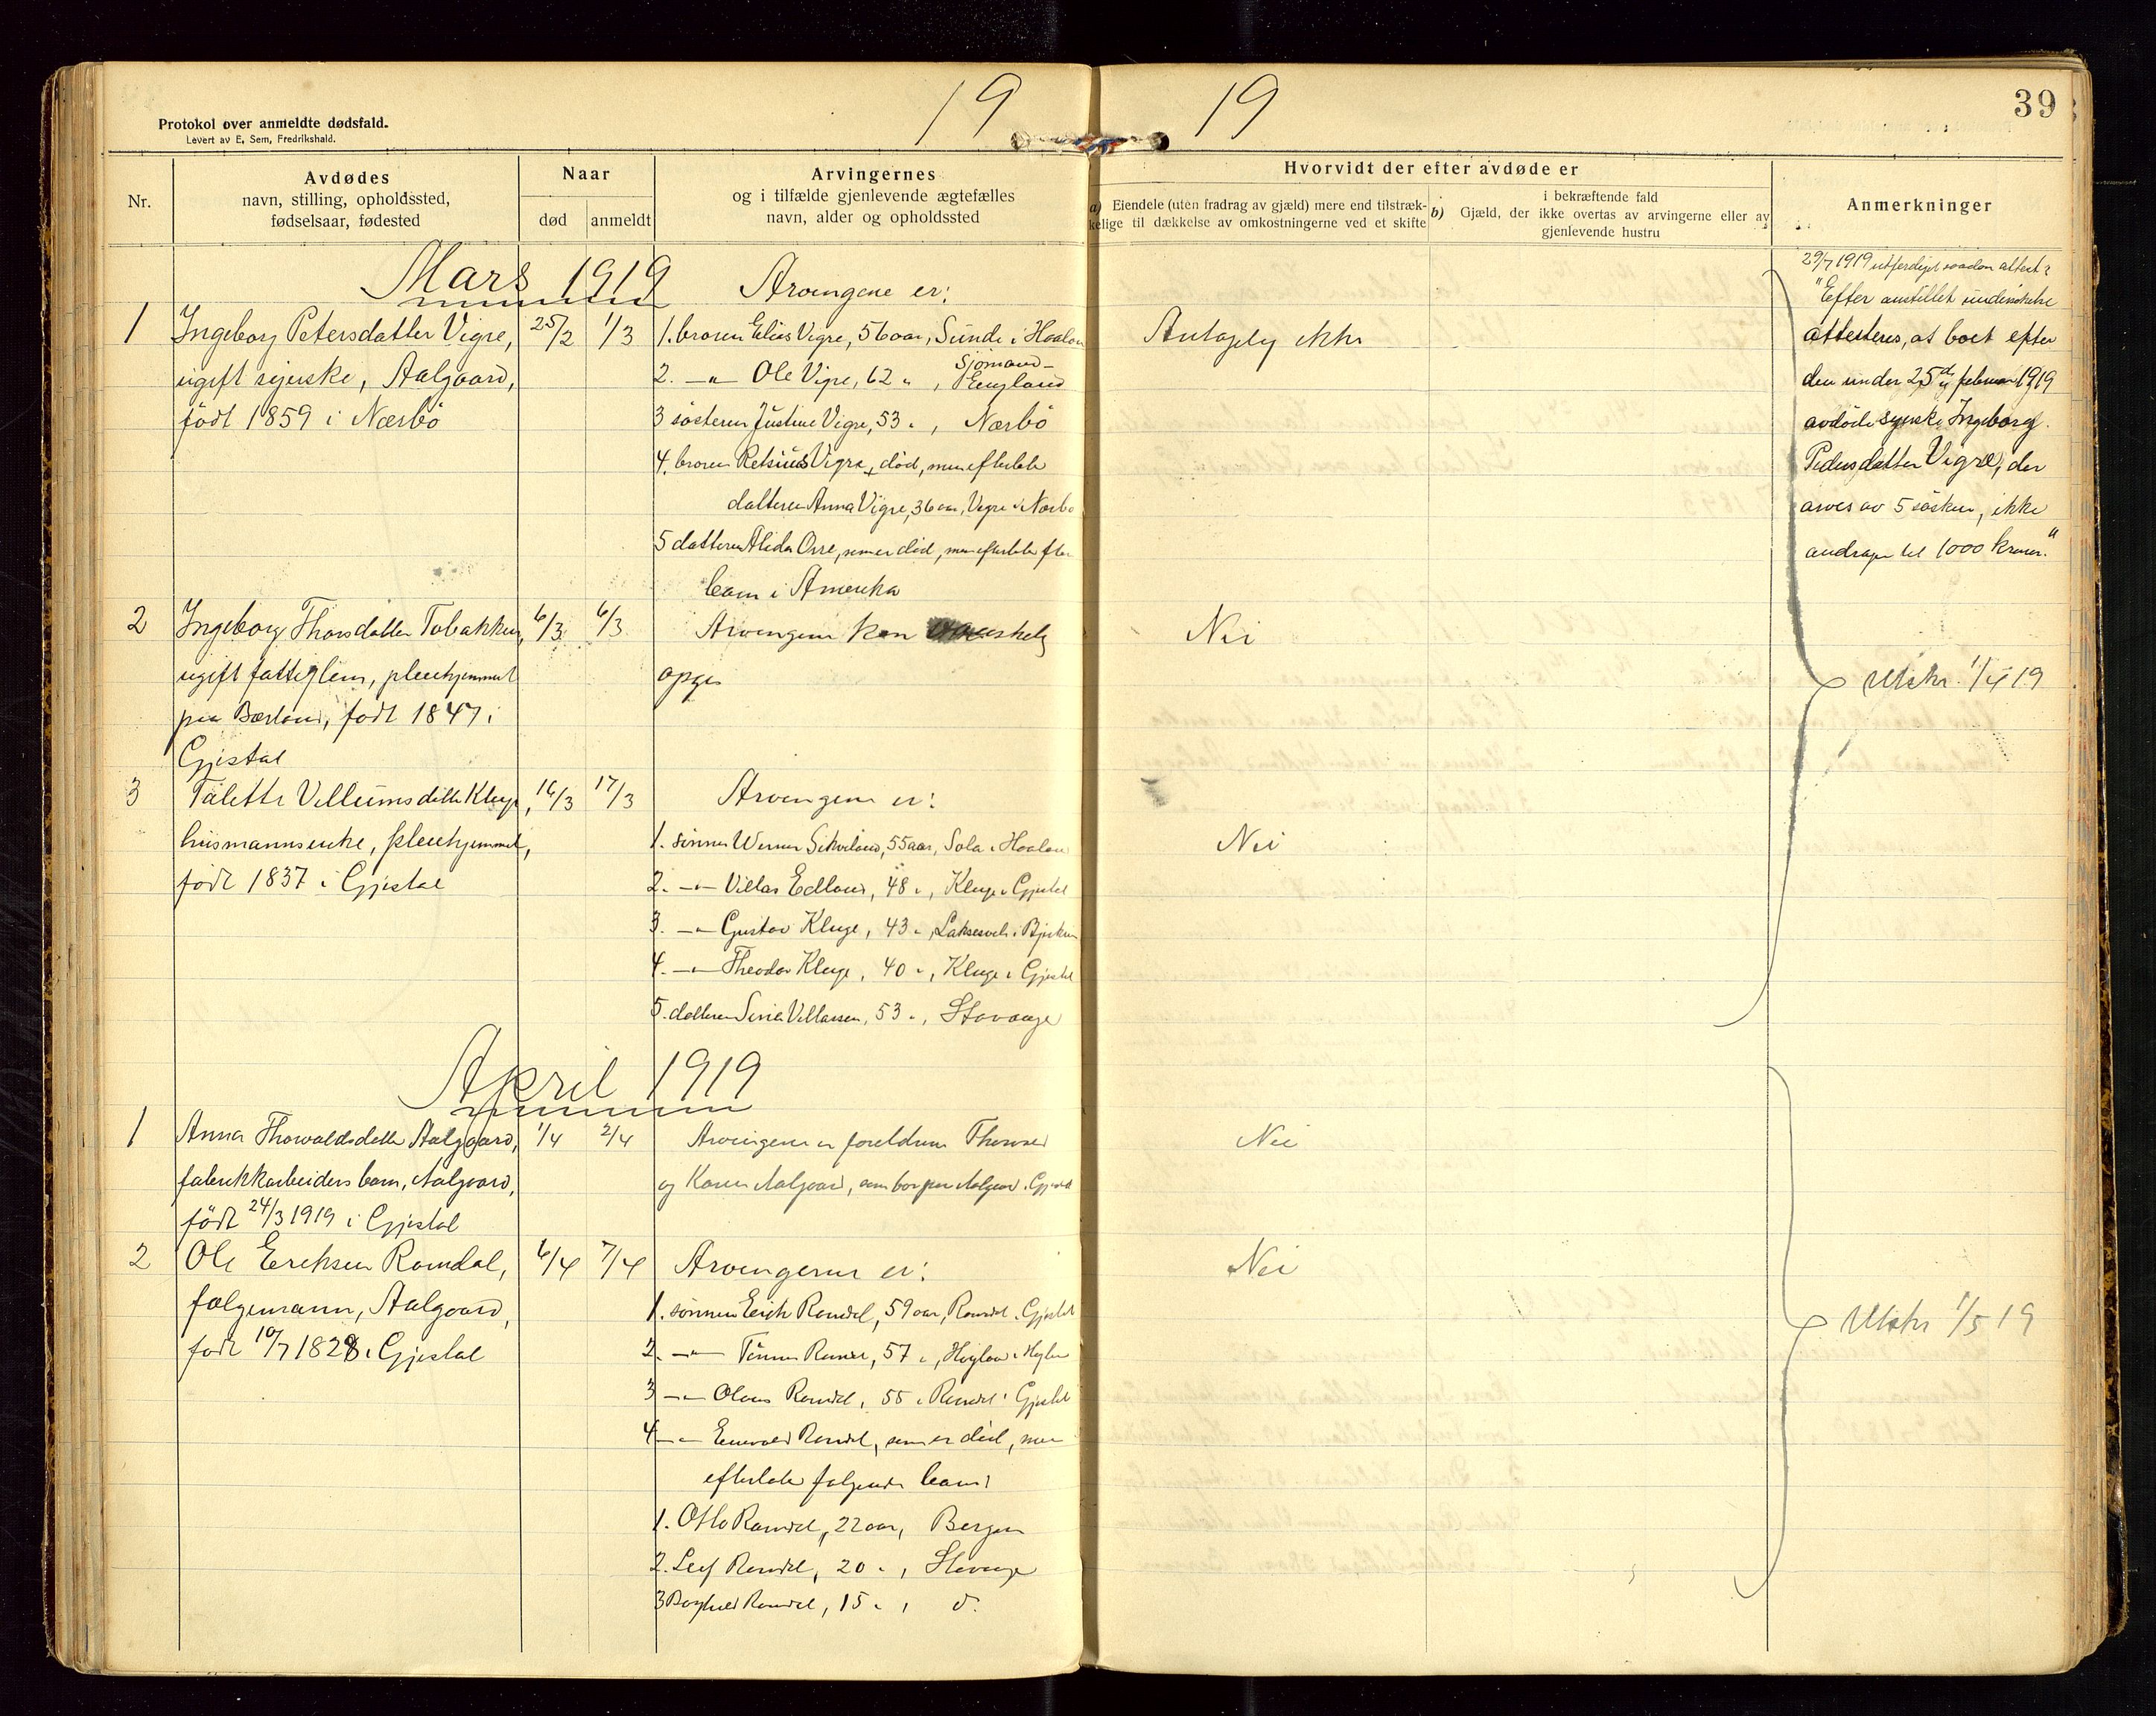 19 19
39
Protokol over anmeldte dødsfald.
Levert av E. Sem, Fredrikshald.
Nr.
Avdødes
navn, stilling, opholdssted,
fødselsaar, fødested
Naar
død anmeldt
Arvingernes
og i tilfælde gjenlevende ægtefælles
navn, alder og opholdssted
Hvorvidt der efter avdøde er
a) Eiendele (uten fradrag av gjæld) mere end tilstræk-
kelige til dækkelse av omkostningerne ved et skifte
b) Gjæld, der
i bekræftende fald
ikke overtas av arvingerne eller av
gjenlevende hustru
Anmerkninger
Mars 1919
1 Ingeborg Petersdatter Vigre, 25/2 1/3
ugift syerske, Aalgaard,
født 1859 i Nærbö
Arvingene er:
1. broren Elias Vigre, 56 aar, Sunde i Haaland
2. -"- Ole Vigre, 62 ", Sjömand -
England
3 søsteren Justine Vigre, 53 ", Nærbö
4. broren Retsius Vigre, død, men efterlot
datteren Anna Vigre, 36 aar, Vigre i Nærbö
5 datteren Alida Orre, som er død, men efterlot flere
barn i Amerika
Antagelig ikke
29/7 1919 utferdiget saadan attest:
"Efter anstillet undersøkelse
attesteres, at boet efter
den under 25de februar 1919
avdøde syerske Ingeborg
Pedersdatter Vigre, der
arves av 5 søsken, ikke
andrager til 1000 kroner."
2 Ingeborg Thorsdatter Tobakken, 6/3 6/3
ugift fattiglem, pleiehjemmet
paa Bærland, født 1847 i
Gjestal
Arvingene kan vanskelig
opgis
Nei
Utskr. 1/4 19
3 Talette Villumsdatter Kluge, 16/3 17/3
husmannsenke, pleiehjemmet,
født 1837 i Gjestal
Arvingene er:
1. sønnen Werner 55 aar, Sola i Haaland
2. -"- Villas Edland, 48 ", Kluge i Gjestal
3. -"- Gustav Kluge, 43 ", i Bjerkreim
4. -"- Theodor Kluge, 40 ", Kluge i Gjestal
5. datteren Villassen, 53 ", Stavanger
Nei
April 1919
1 Anna Thorvaldsdatter Aalgaard, 1/4 2/4
fabrikkarbeiders barn, Aalgaard,
født 24/3 1919 i Gjestal
Arvingene er foreldrene Thorvald
og Karen Aalgaard, som bor paa Aalgaard i Gjestal
Nei
2 Ole Eriksen Ramdal, 6/4 7/4
følgemann, Aalgaard,
født 10/7 1828 i Gjestal
Arvingerne er:
1. sønnen Erich Ramdal, 59 aar, Ramdal i Gjestal
2. -"- Tønnes Ramdal, 57 ", Høyland i Høyland
3 -"- Olaus Ramdal, 55 " Ramdal i Gjestal
4 -"- Ramdal, som er død, men
efterlot følgende barn:
1. Otto Ramdal, 22 aar, Bergen
2. Leif Ramdal, 20 ", Stavanger
3 Ramdal, 15 ", d.
Nei
Utskr 1/5 19